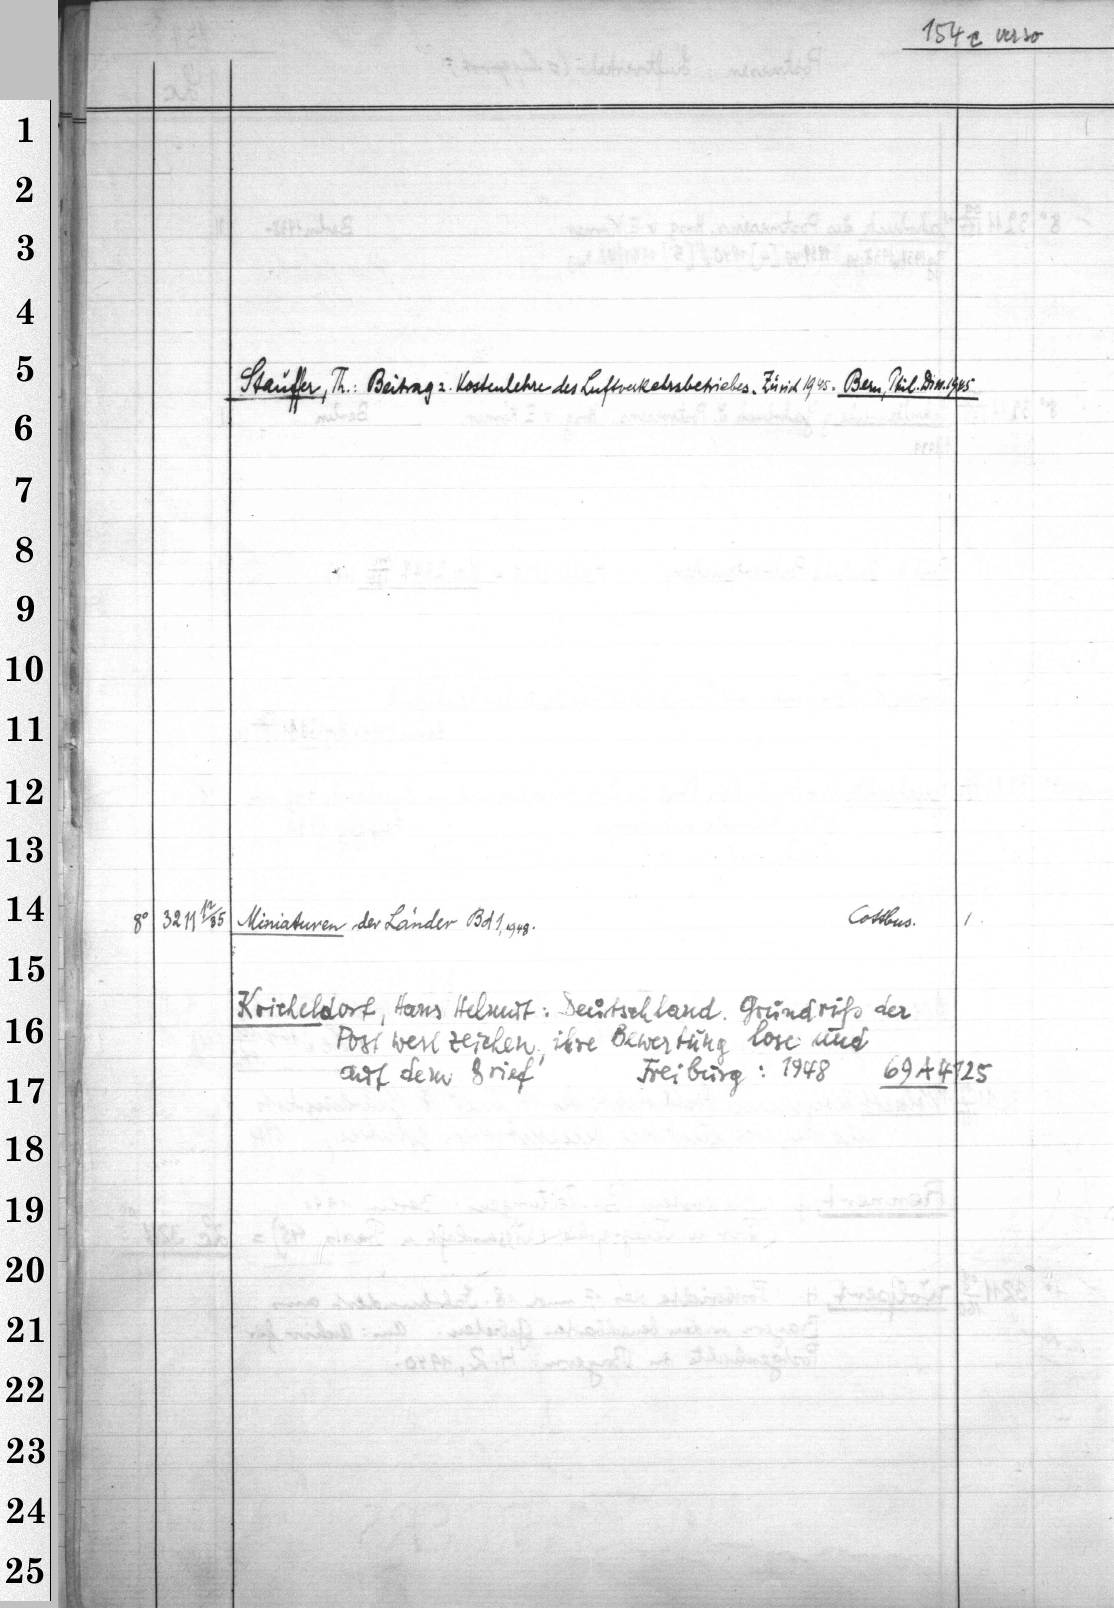 154c verso
1
2
3
4
5
Stauffer, Th.: Beitrag z. Kostenlehre des Luftverkehrsbetriebes. Zürich 1945. Bern, Phil. Diss. 1945
6
7
8
9
10
11
12
13
14
8° 3211 12/85 Miniaturen der Länder Bd 1, 1948. Cottbus. 1
15
Kricheldorf, Hans Helmut: Deutschland. Grundriß der
16
Postwertzeichen, ihre Bewertung lose und
auf dem Brief Freiburg: 1948 69 A 4725
17
18
19
20
21
22
23
24
25